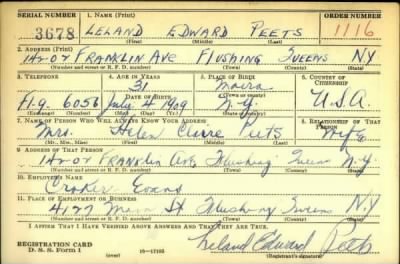 SERIAL NUMBER 1. NAME (Print) ORDER NUMBER
3678 LELAND EDWARD PEETS 1116
(First) (Middle) (Last)
2. ADDRESS (Print)
142-07 FRANKLIN AVE FLUSHING QUEENS N.Y.
(Number and street or R. F. D. number) (Town) (County) (State)
3. TELEPHONE 4. AGE IN YEARS 5. PLACE OF BIRTH 6. COUNTRY OF CITIZENSHIP
31 Moira
DATE OF BIRTH
Fl-9. 6056 July 4 1909 N.Y. U.S.A.
(Exchange) (Number) (Mo.) (Day) (Yr.) (State or country)
7. NAME OF PERSON WHO WILL ALWAYS KNOW YOUR ADDRESS 8. RELATIONSHIP OF THAT PERSON
Mrs. Helen Claire Peets Wife
(Mr., Mrs., Miss) (First) (Middle) (Last)
9. ADDRESS OF THAT PERSON
142-07 Franklin Ave Flushing Queens N.Y.
(Number and street or R. F. D. number) (Town) (County) (State)
10. EMPLOYER'S NAME
Evans
11. PLACE OF EMPLOYMENT OR BUSINESS
Main St Flushing Queens NY
(Number and street or R. F. D. number) (Town) (County) (State)
I AFFIRM THAT I HAVE VERIFIED ABOVE ANSWERS AND THAT THEY ARE TRUE.
REGISTRATION CARD
D. S. S. Form 1 (over) Leland Edward Peets
(Registrant's signature)